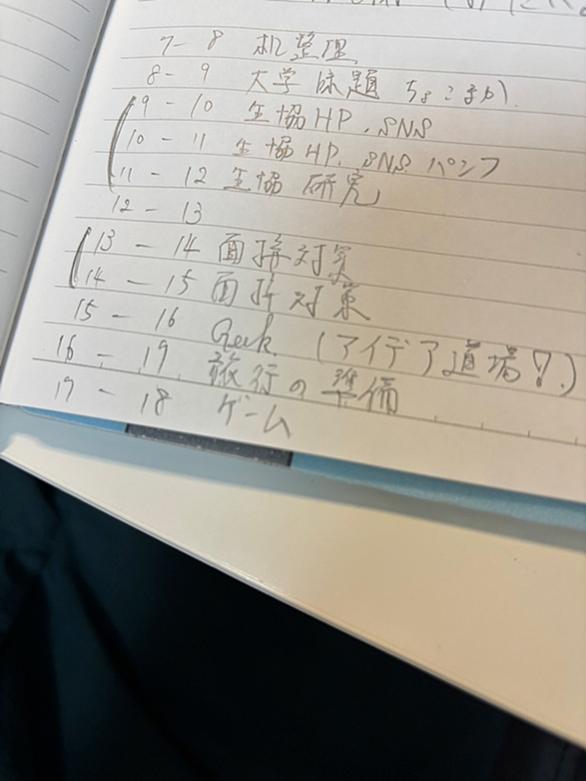 7 - 8 机整理
8 - 9 大学 課題
9 - 10 生協HP、SNS
10 - 11 生協HP、SNS パンフ
11 - 12 生協 研究
12 - 13
13 - 14 面接対策
14 - 15 面接対策
15 - 16 Geek (アイデア道場!.)
16 - 17 旅行の準備
17 - 18 ゲーム